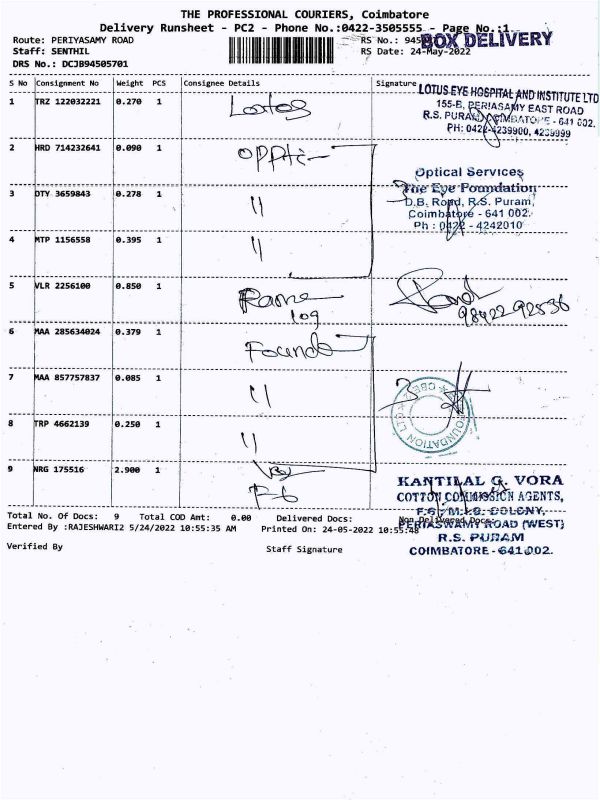 THE PROFESSIONAL COURIERS, Coimbatore
Delivery Runsheet - PC2 - Phone No.:0422-3505555 - Page No.:1
Route: PERIYASAMY ROAD
RS No.: 945
BOX DELIVERY
Staff: SENTHIL
RS Date: 24-May-2022
DRS No.: DCJB94505701
S No Consignment No Weight PCS Consignee Details Signature
1 TRZ 122032221 0.270 1 Lotus
LOTUS EYE HOSPITAL AND INSTITUTE LTD
155-B, PERIASAMY EAST ROAD
R.S. PURAM, COIMBATORE - 641 002.
PH: 0422-4239900, 4239999
2 HRD 714232641 0.090 1
Optical Services
The Eye Foundation
D.B. Road, R.S. Puram,
Coimbatore - 641 002.
Ph : 0422 - 4242010
3 DTY 3659843 0.278 1 "
3
4 MTP 1156558 0.395 1 "
5 VLR 2256100 0.850 1
98422 92536
6 MAA 285634024 0.379 1 Founda
7 MAA 857757837 0.085 1 "
3
8 TRP 4662139 0.250 1 "
FOUNDATION
9 NRG 175516 2.900 1
F-6
KANTILAL G. VORA
COTTON COMMISSION AGENTS,
F.6, M.I.G. COLONY,
PERIASWAMY ROAD (WEST)
R.S. PURAM
COIMBATORE - 641 002.
Total No. Of Docs: 9 Total COD Amt: 0.00 Delivered Docs: Non Delivered Docs:
Entered By :RAJESHWARI2 5/24/2022 10:55:35 AM Printed On: 24-05-2022 10:55:48
Verified By Staff Signature